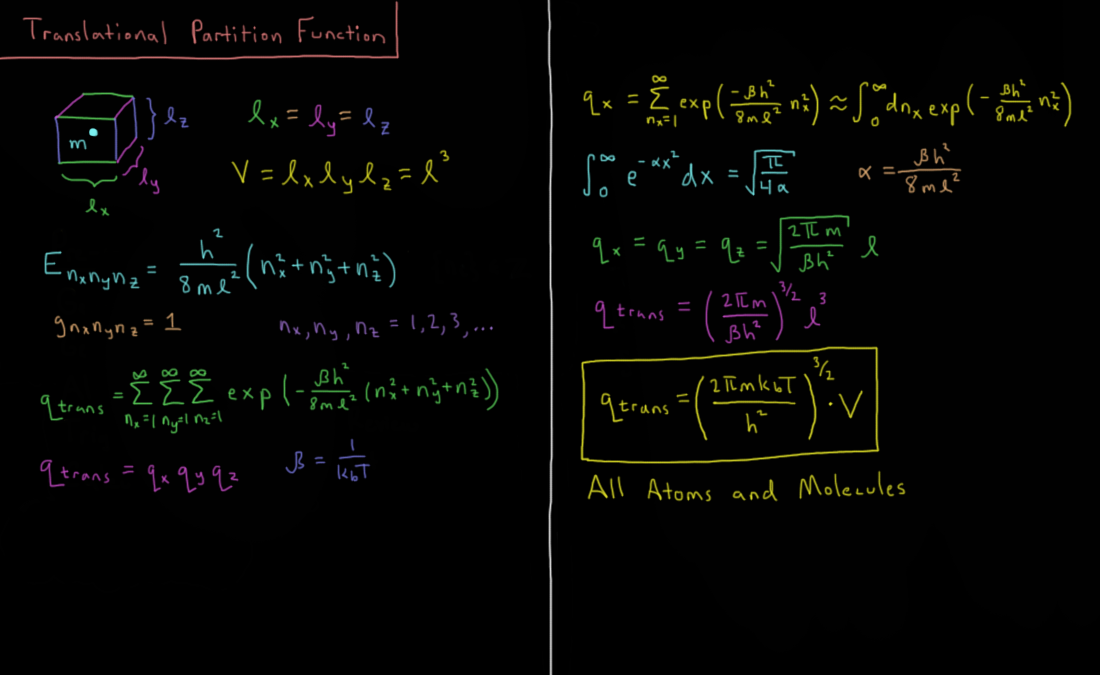 Translational Partition Function
m
l_z
l_y
l_x
l_x = l_y = l_z
V = l_x l_y l_z = l³
E_{n_x n_y n_z} = h²/8ml² (n_x² + n_y² + n_z²)
g_{n_x n_y n_z} = 1
n_x, n_y, n_z = 1, 2, 3, ...
q_trans = ∑_{n_x=1}^∞ ∑_{n_y=1}^∞ ∑_{n_z=1}^∞ exp(-βh²/8ml² (n_x² + n_y² + n_z²))
q_trans = q_x q_y q_z
β = 1/k_bT
q_x = ∑_{n_x=1}^∞ exp(-βh²/8ml² n_x²) ≈ ∫_0^∞ dn_x exp(-βh²/8ml² n_x²)
∫_0^∞ e^{-αx²} dx = √(π/4a)
α = βh²/8ml²
q_x = q_y = q_z = √(2πm/βh²) l
q_trans = (2πm/βh²)^{3/2} l³
q_trans = (2πmk_bT/h²)^{3/2} · V
All Atoms and Molecules